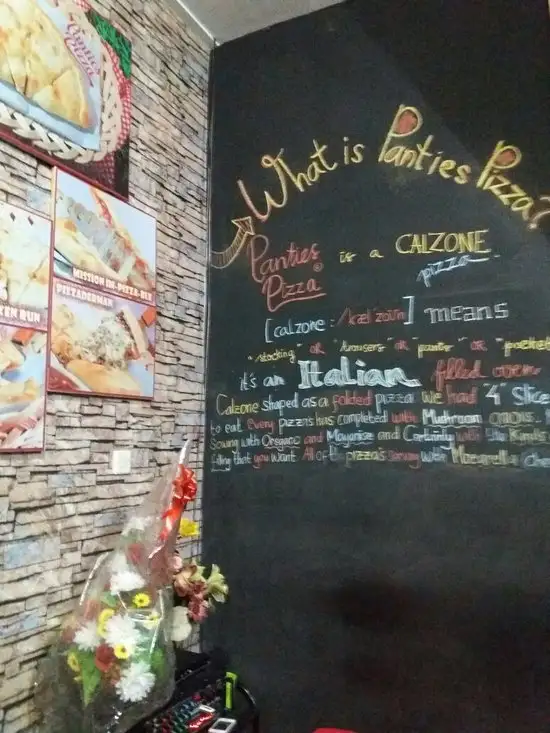 What is Panties Pizza?
Panties Pizza © is a CALZONE pizza.
[calzone: /kæl'zoʊn] means
"stocking" OR "trousers" OR "pants" OR
it's an Italian filled oven
Calzone shaped as a folded pizza! We had "4" Slice
to eat. Every Pizza's has completed with Mushroom, onions,
Saung with Oregano and Mayonise and Certainly with the Kinds
filling that you want. All of pizza's saung with Mozarella
MISSION IM-PIZZA-BLE
PIZZADERMAN
KEN RUN